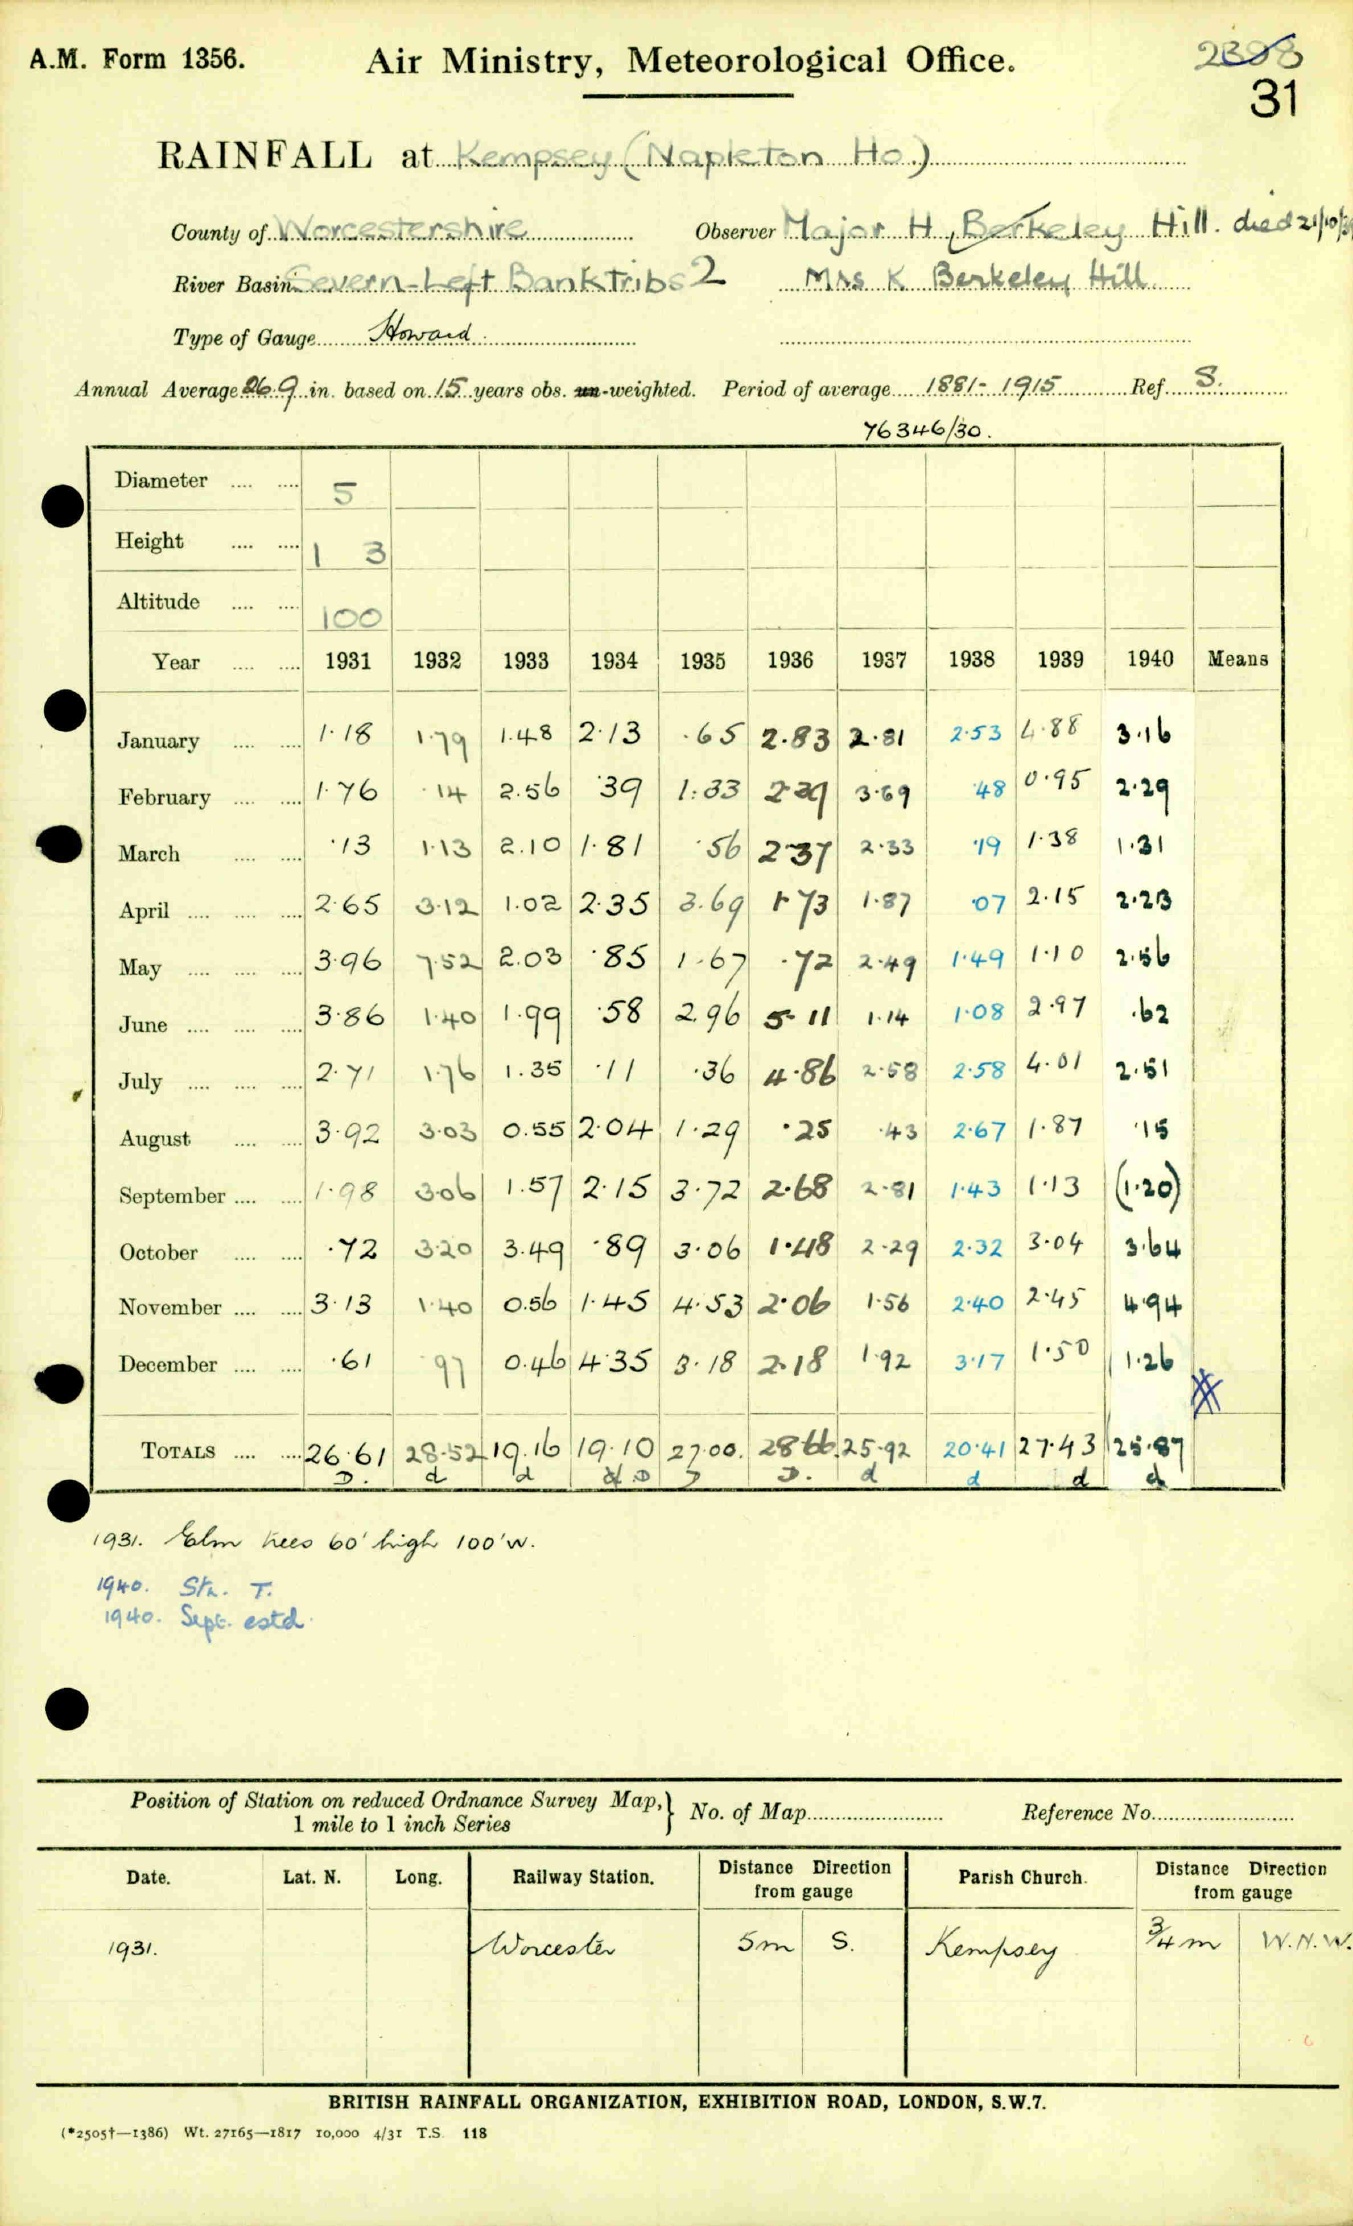 A.M. Form 1356.
Air Ministry, Meteorological Office.
2398
31
RAINFALL at Kempsey (Napleton Ho.)
County of Worcestershire Observer Major H. Berkeley Hill. died 21/10/
River Basin Severn-Left Bank Tribs 2 Mrs K Berkeley Hill
Type of Gauge Howard
Annual Average 26.9 in. based on 15 years obs. un-weighted. Period of average 1881-1915 Ref. S.
76346/30.
Diameter 5
Height 1 3
Altitude 100
Year 1931 1932 1933 1934 1935 1936 1937 1938 1939 1940 Means
January 1.18 1.79 1.48 2.13 .65 2.83 2.81 2.53 4.88 3.16
February 1.76 .14 2.56 .39 1.33 2.39 3.69 .48 0.95 2.29
March .13 1.13 2.10 1.81 .56 2.37 2.33 .19 1.38 1.31
April 2.65 3.12 1.02 2.35 3.69 1.73 1.87 .07 2.15 2.23
May 3.96 7.52 2.03 .85 1.67 .72 2.49 1.49 1.10 2.56
June 3.86 1.40 1.99 .58 2.96 5.11 1.14 1.08 2.97 .62
July 2.71 1.76 1.35 .11 .36 4.86 2.58 2.58 4.01 2.51
August 3.92 3.03 0.55 2.04 1.29 .25 .43 2.67 1.87 .15
September 1.98 3.06 1.57 2.15 3.72 2.68 2.81 1.43 1.13 (1.20)
October .72 3.20 3.49 .89 3.06 1.48 2.29 2.32 3.04 3.64
November 3.13 1.40 0.56 1.45 4.53 2.06 1.56 2.40 2.45 4.94
December .61 .97 0.46 4.35 3.18 2.18 1.92 3.17 1.50 1.26
TOTALS 26.61 28.52 19.16 19.10 27.00. 28.66. 25.92 20.41 27.43 25.87
D. d d d D D D. d d d d
1931. Elm trees 60' high 100' W.
1940. Stn. T.
1940. Sept. estd.
Position of Station on reduced Ordnance Survey Map, 1 mile to 1 inch Series } No. of Map Reference No.
Date. Lat. N. Long. Railway Station. Distance Direction from gauge Parish Church. Distance Direction from gauge
1931. Worcester 5m S. Kempsey 3/4 m W.N.W.
BRITISH RAINFALL ORGANIZATION, EXHIBITION ROAD, LONDON, S.W.7.
(*2505†—1386) Wt. 27165—1817 10,000 4/31 T.S. 118